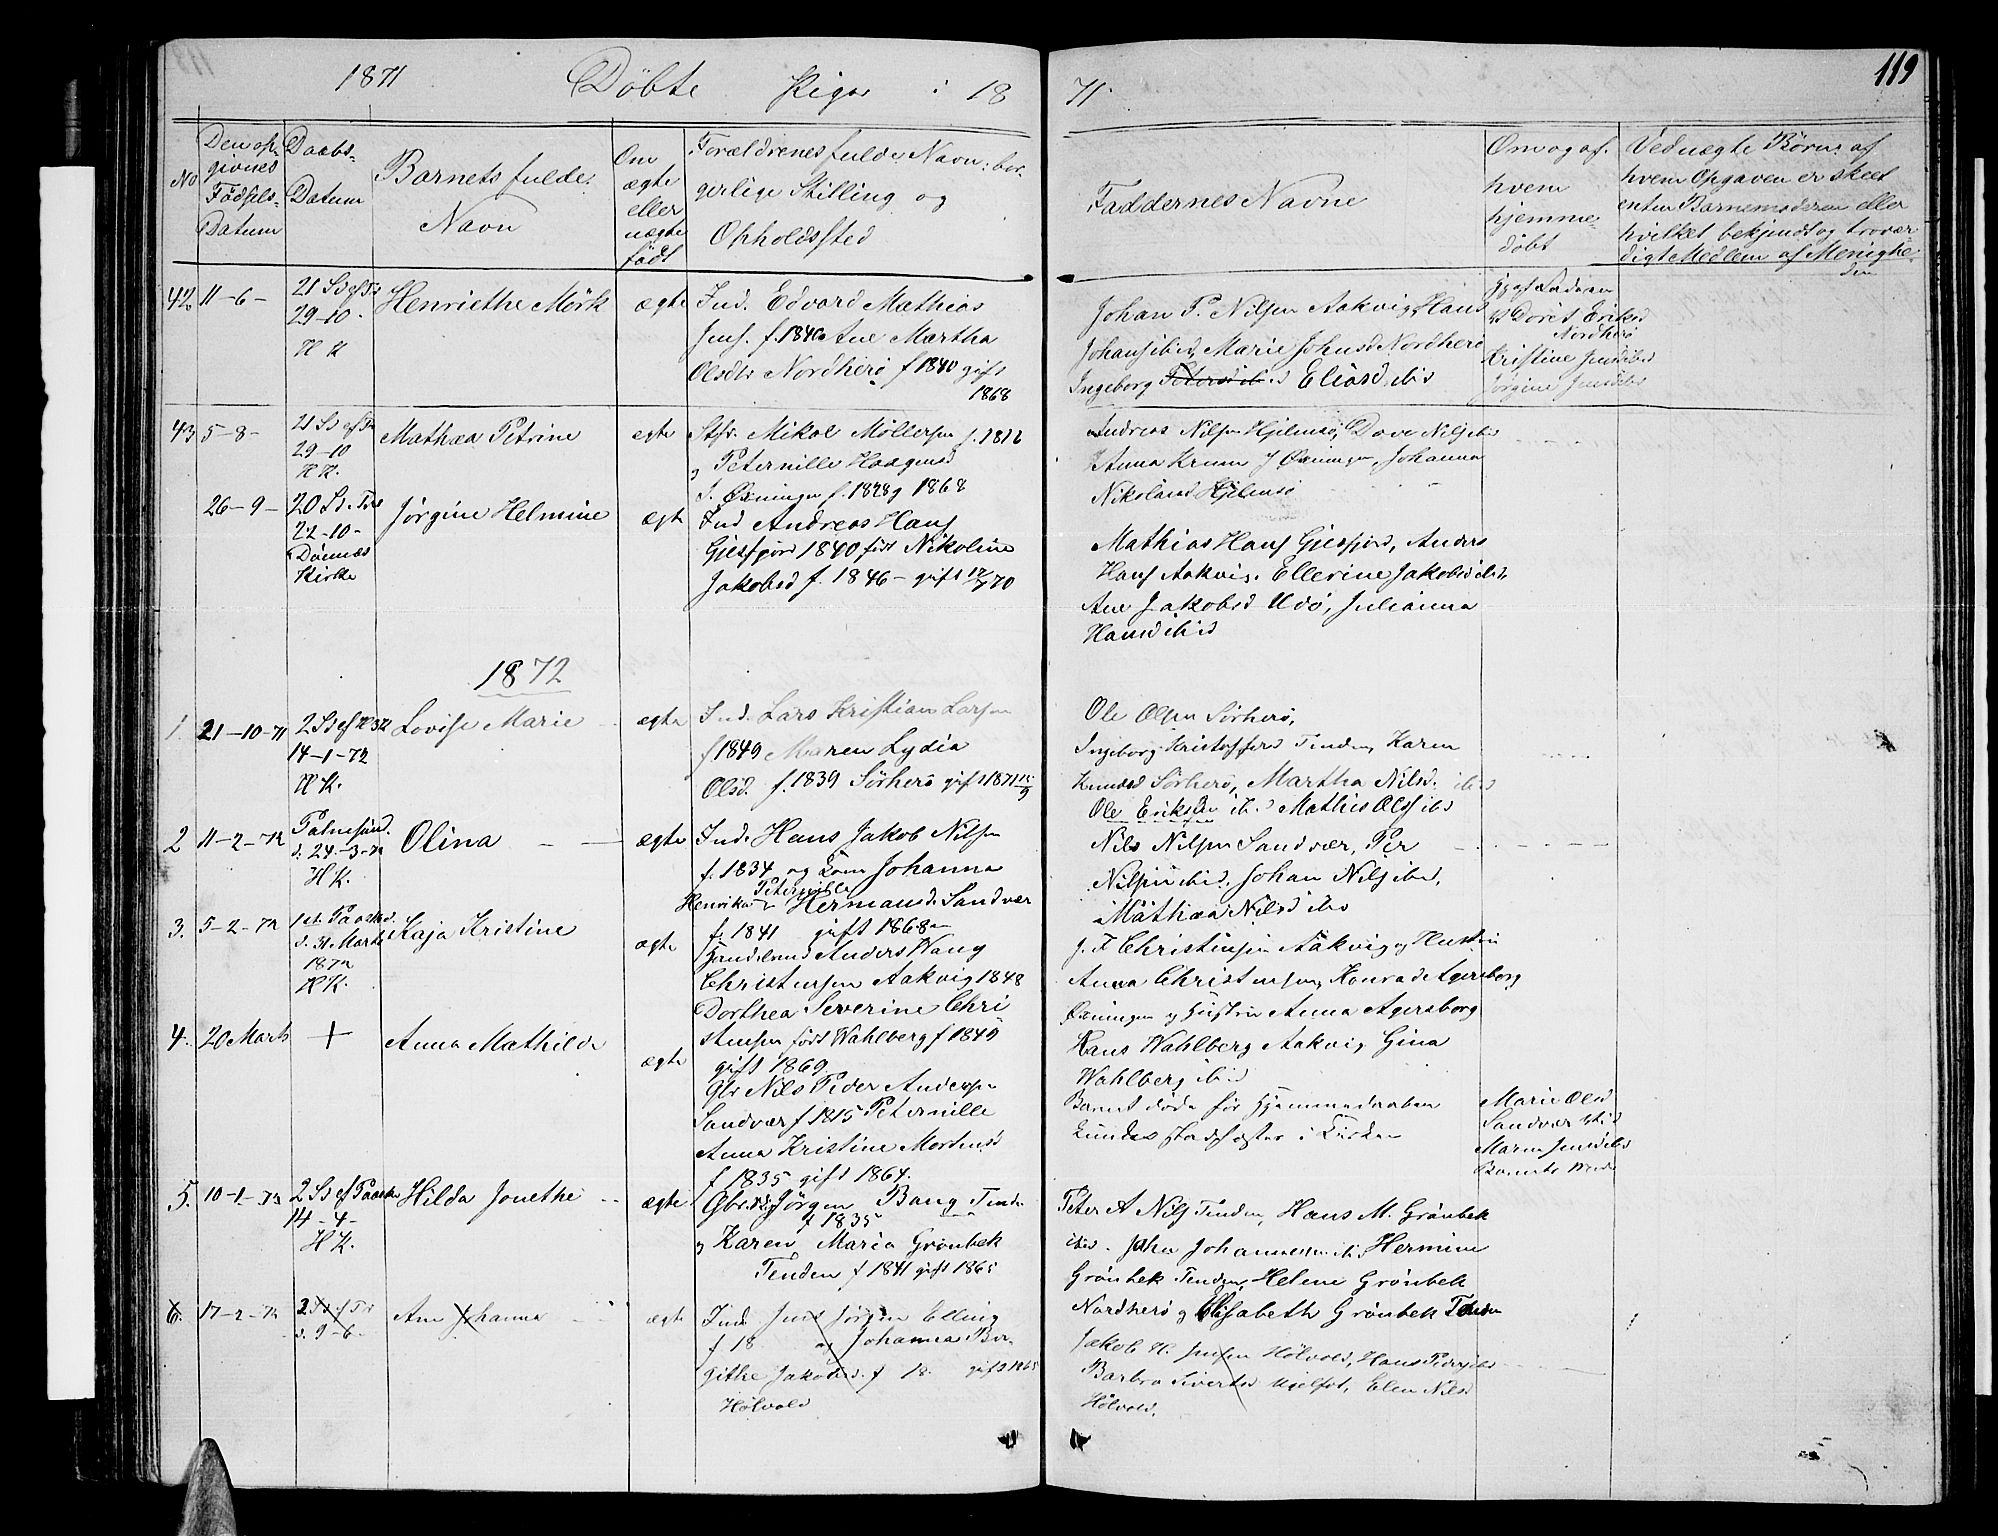 1871 Döbte Piger i 18
71.
119
No
Den op-
givnes
Födsels-
Datum
Daabs-
Datum
Barnets fulde
Navn
Om
ægte
eller
uægte
födt
Forældrenes fulde Navn, bor-
gerlige Stilling og
Opholdssted
Faddernes Navne
Om og af
hvem
hjemme-
döbt
Ved uægte Börn: af
hvem Opgaven er skeet
enten Barnemoderen eller
hvilket bekjendt og trovær-
digt Medlem af Menighe-
den
42 11-6-
21 S ef Tr
29-10-
H K
Henriethe Mörk
ægte
Ind. Edvard Mathias
Jens. f. 1840 Ane Martha
Olsdtr Nordherö f 1840 gift
1868
Johan P. Nilsen Aakvig, Hans
Johans ibid, Marie Johnsd Nordherö
Ingeborg Petersd ibid Eliasd ibid
Doret Eriksd
Nordherö
Kristine Jensd ibid
Jörgine Jensd ibid
43 5-8-
21 S ef Tr
29-10
H K.
Mathea Petrine
egte
Mikal Möllersen f. 1816
og Peternille Haagensd
Öxningen f. 1828 g 1868
Andreas Nilsen Hjelmsö, Dove Nils ibid
Anna Krum Öxningen, Johanna
Nikolaisd Hjelmsö
26-9-
20 S. Tr
22-10-
Dönnæs
Kirke
Jörgine Helmine
ægte
Ind Andreas Hans
Gjesfjord 1840 födt Nikoline
Jakobsd f. 1846- gift 70
Mathias Hans Gjesfjord, Anders
Hans Aakvig, Ellerine Jakobsd ibid,
Ane Jakobsd Udö, Julianna
Hansd ibid
1872
1 21-10-71
2 S ef H 3 K
14-1-72
H K.
Lovise Marie
ægte
Ind. Lars Kristian Larsen
f 1849 Maren Lydia
Olsd. f. 1839 Sörherö gift 1871
Ole Olsen Sörherö,
Ingeborg Kristoffersd Tenden, Karen
Knudsd Sörherö, Martha Nilsd. ibid
Ole Eriksen ibid Mathis Ols ibid
2 11-2-72
Palmesönd.
d. 24-3-72
H K.
Olina
ægte
Ind. Hans Jakob Nilsen
f. 1834 og Kone Johanna
Peternille
Henrika Hermansd. Sandvær
f. 1841 gift 1868
Nils Nilsen Sandvær, Per
Nilsen ibid, Johan Nils ibid,
Mathea Nilsd ibid
3. 5-2-72
1st. Paasked.
d. 31 Marts
1872
H K.
Kaja Kristine
ægte
Handelsmd Anders Wang
Christensen Aakvig 1848
Dorthea Severine Chri
stensen födt Wahlberg f 1849
gift 1869
J. F Christensen Aakvig og Hustru
Anna Christensen, Konrad Agersborg
Öxningen og Hustru Anna Agersborg
Hans Wahlberg Aakvig Gina
Wahlberg ibid
4. 20 Marts
+
Anna Mathilde
ægte
Gbr Nils Peder Andersen
Sandvær f 1815 Peternille
Anna Kristine Mortensd
f 1835 gift 1864.
Barnet döde för Hjemmedaaben
kundes stadfæstes i Kirken
Marie Olsd
Sandvær
Maren Jensd ibid
Barnets
5. 10-1-72
2 S ef Paaske
14-4-
H K.
Hilda Jonethe
ægte
Gbr. Jörgen Bang Tenden
f 1835
og Karen Maria Grönbek
Tenden f 1841 gift 1865
Peter A Nils Tenden, Hans M. Grönbek
ibid. John Johannesen ibid Hermine
Grönbek Tenden, Helene Grönbek
Nordherö og Elisabeth Grönbek Tenden
6. 17-2-72
2 S ef Tr
d. 9-6-
Ane Johanna
ægte
Ind Jens Jörgen Elling
f 18 og Johanna Bir-
githe Jakobsd. f 18. gift 1865
Hölvold
Jakob H. Jensen Hölvold, Hans Peders ibid
Barbra Sivertsd, Elen Nilsd
Hölvold.